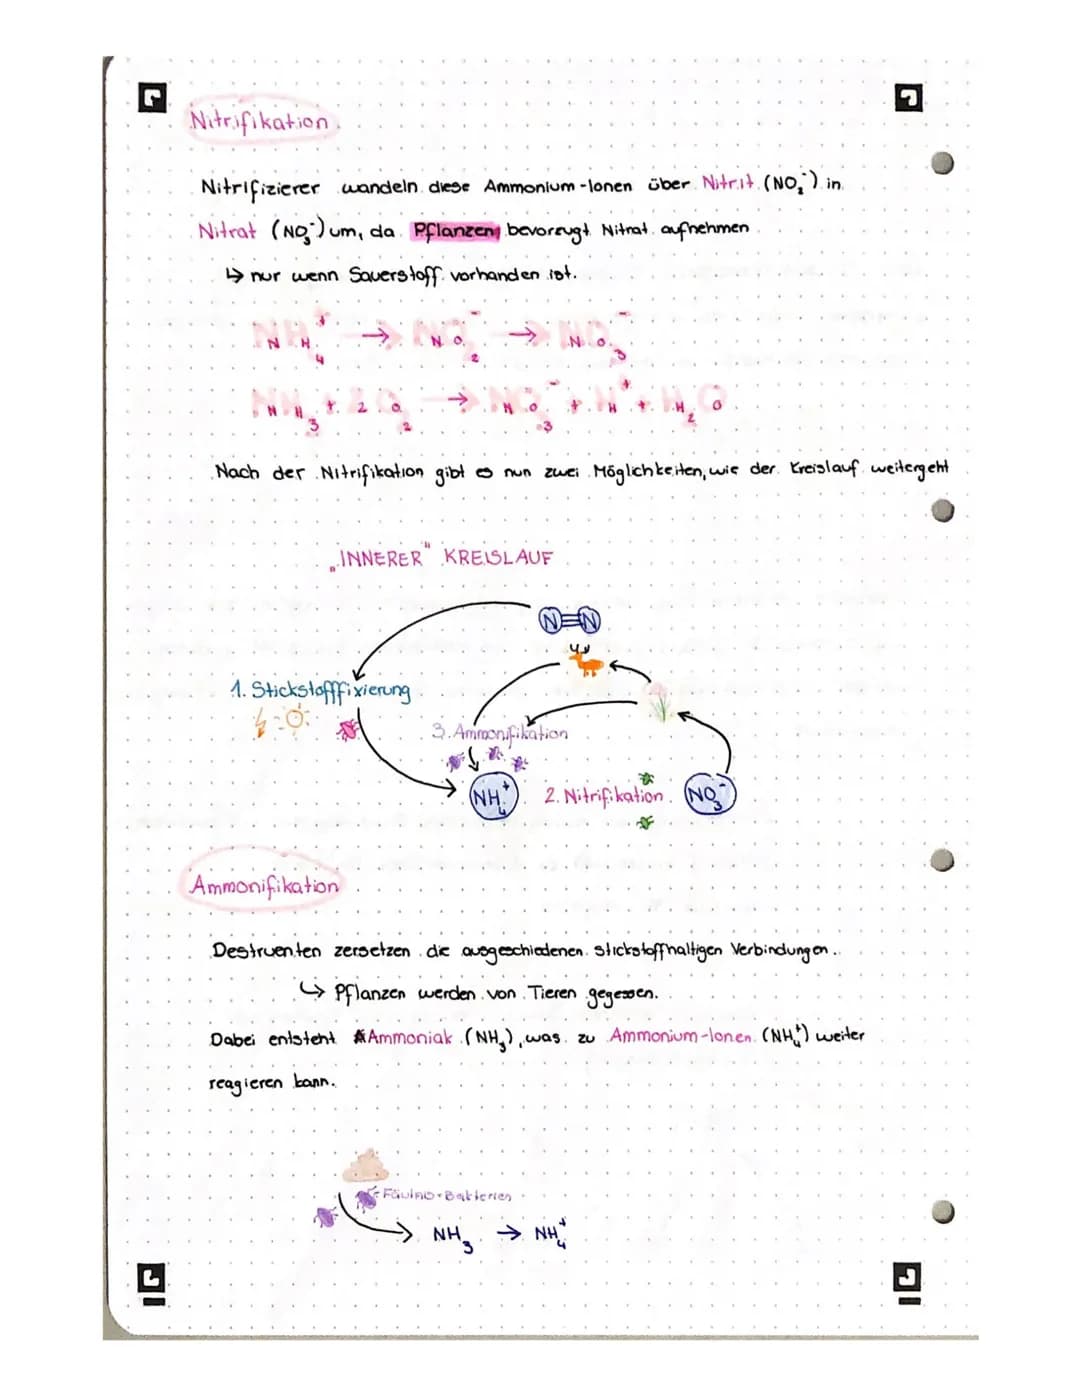 Nitrifikation
Nitrifizierer wandeln diese Ammonium-Ionen über Nitrit (NO₂⁻) in
Nitrat (NO₃⁻) um, da Pflanzen bevorzugt Nitrat aufnehmen
↳ nur wenn Sauerstoff vorhanden ist.
NH₄⁺ → NO₂⁻ → NO₃⁻
NH₃ + 2 O₂ → NO₃⁻ + H⁺ + H₂O
Nach der Nitrifikation gibt es nun zwei Möglichkeiten, wie der Kreislauf weitergeht
„INNERER" KREISLAUF
N≡N
1. Stickstofffixierung
3. Ammonifikation
NH₄⁺
2. Nitrifikation
NO₃⁻
Ammonifikation
Destruenten zersetzen die ausgeschiedenen stickstoffhaltigen Verbindungen.
↳ Pflanzen werden von Tieren gegessen.
Dabei entsteht Ammoniak (NH₃), was zu Ammonium-Ionen (NH₄⁺) weiter
reagieren kann.
Fäulnis-Bakterien
NH₃ → NH₄⁺